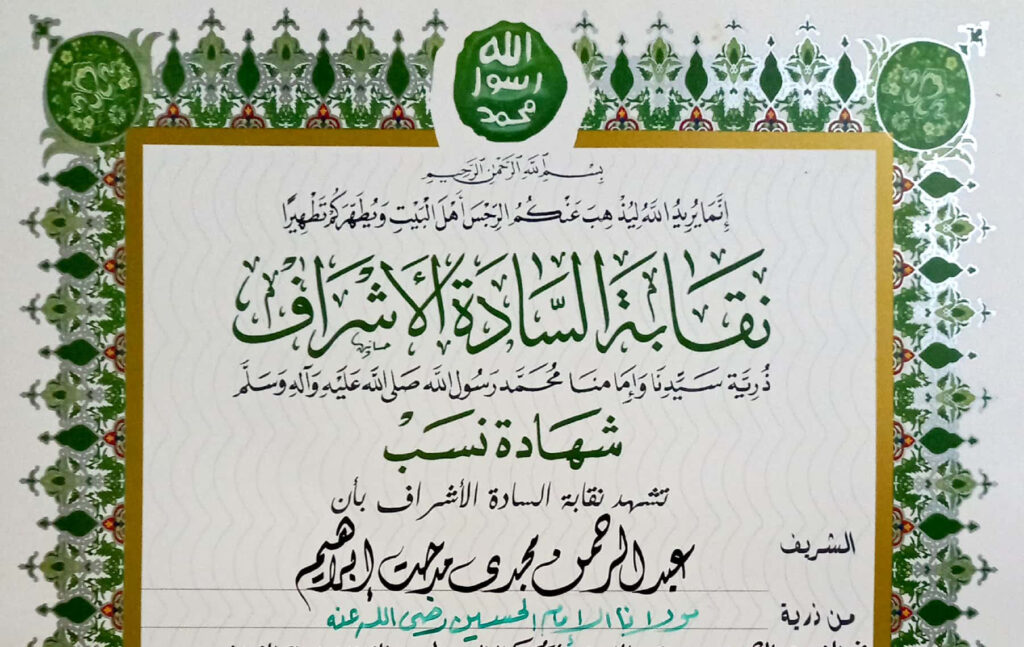 الله
رسول
محمد
بِسْمِ اللَّهِ الرَّحْمٰنِ الرَّحِيمِ
إِنَّمَا يُرِيدُ اللَّهُ لِيُذْهِبَ عَنْكُمُ الرِّجْسَ أَهْلَ الْبَيْتِ وَيُطَهِّرَكُمْ تَطْهِيرًا
نقابة السَّادَة الأَشْرَاف
ذُرِّيَّة سَيِّدِنَا وَإِمَامِنَا مُحَمَّد رَسُول اللَّه صَلَّى اللَّه عَلَيْهِ وَآلِهِ وَسَلَّم
شهادة نسب
تشهد نقابة السادة الأشراف بأن
الشريف عبد الرحمن مجدى مدحت إبراهيم
من ذرية مولانا الإمام الحسين رضى الله عنه